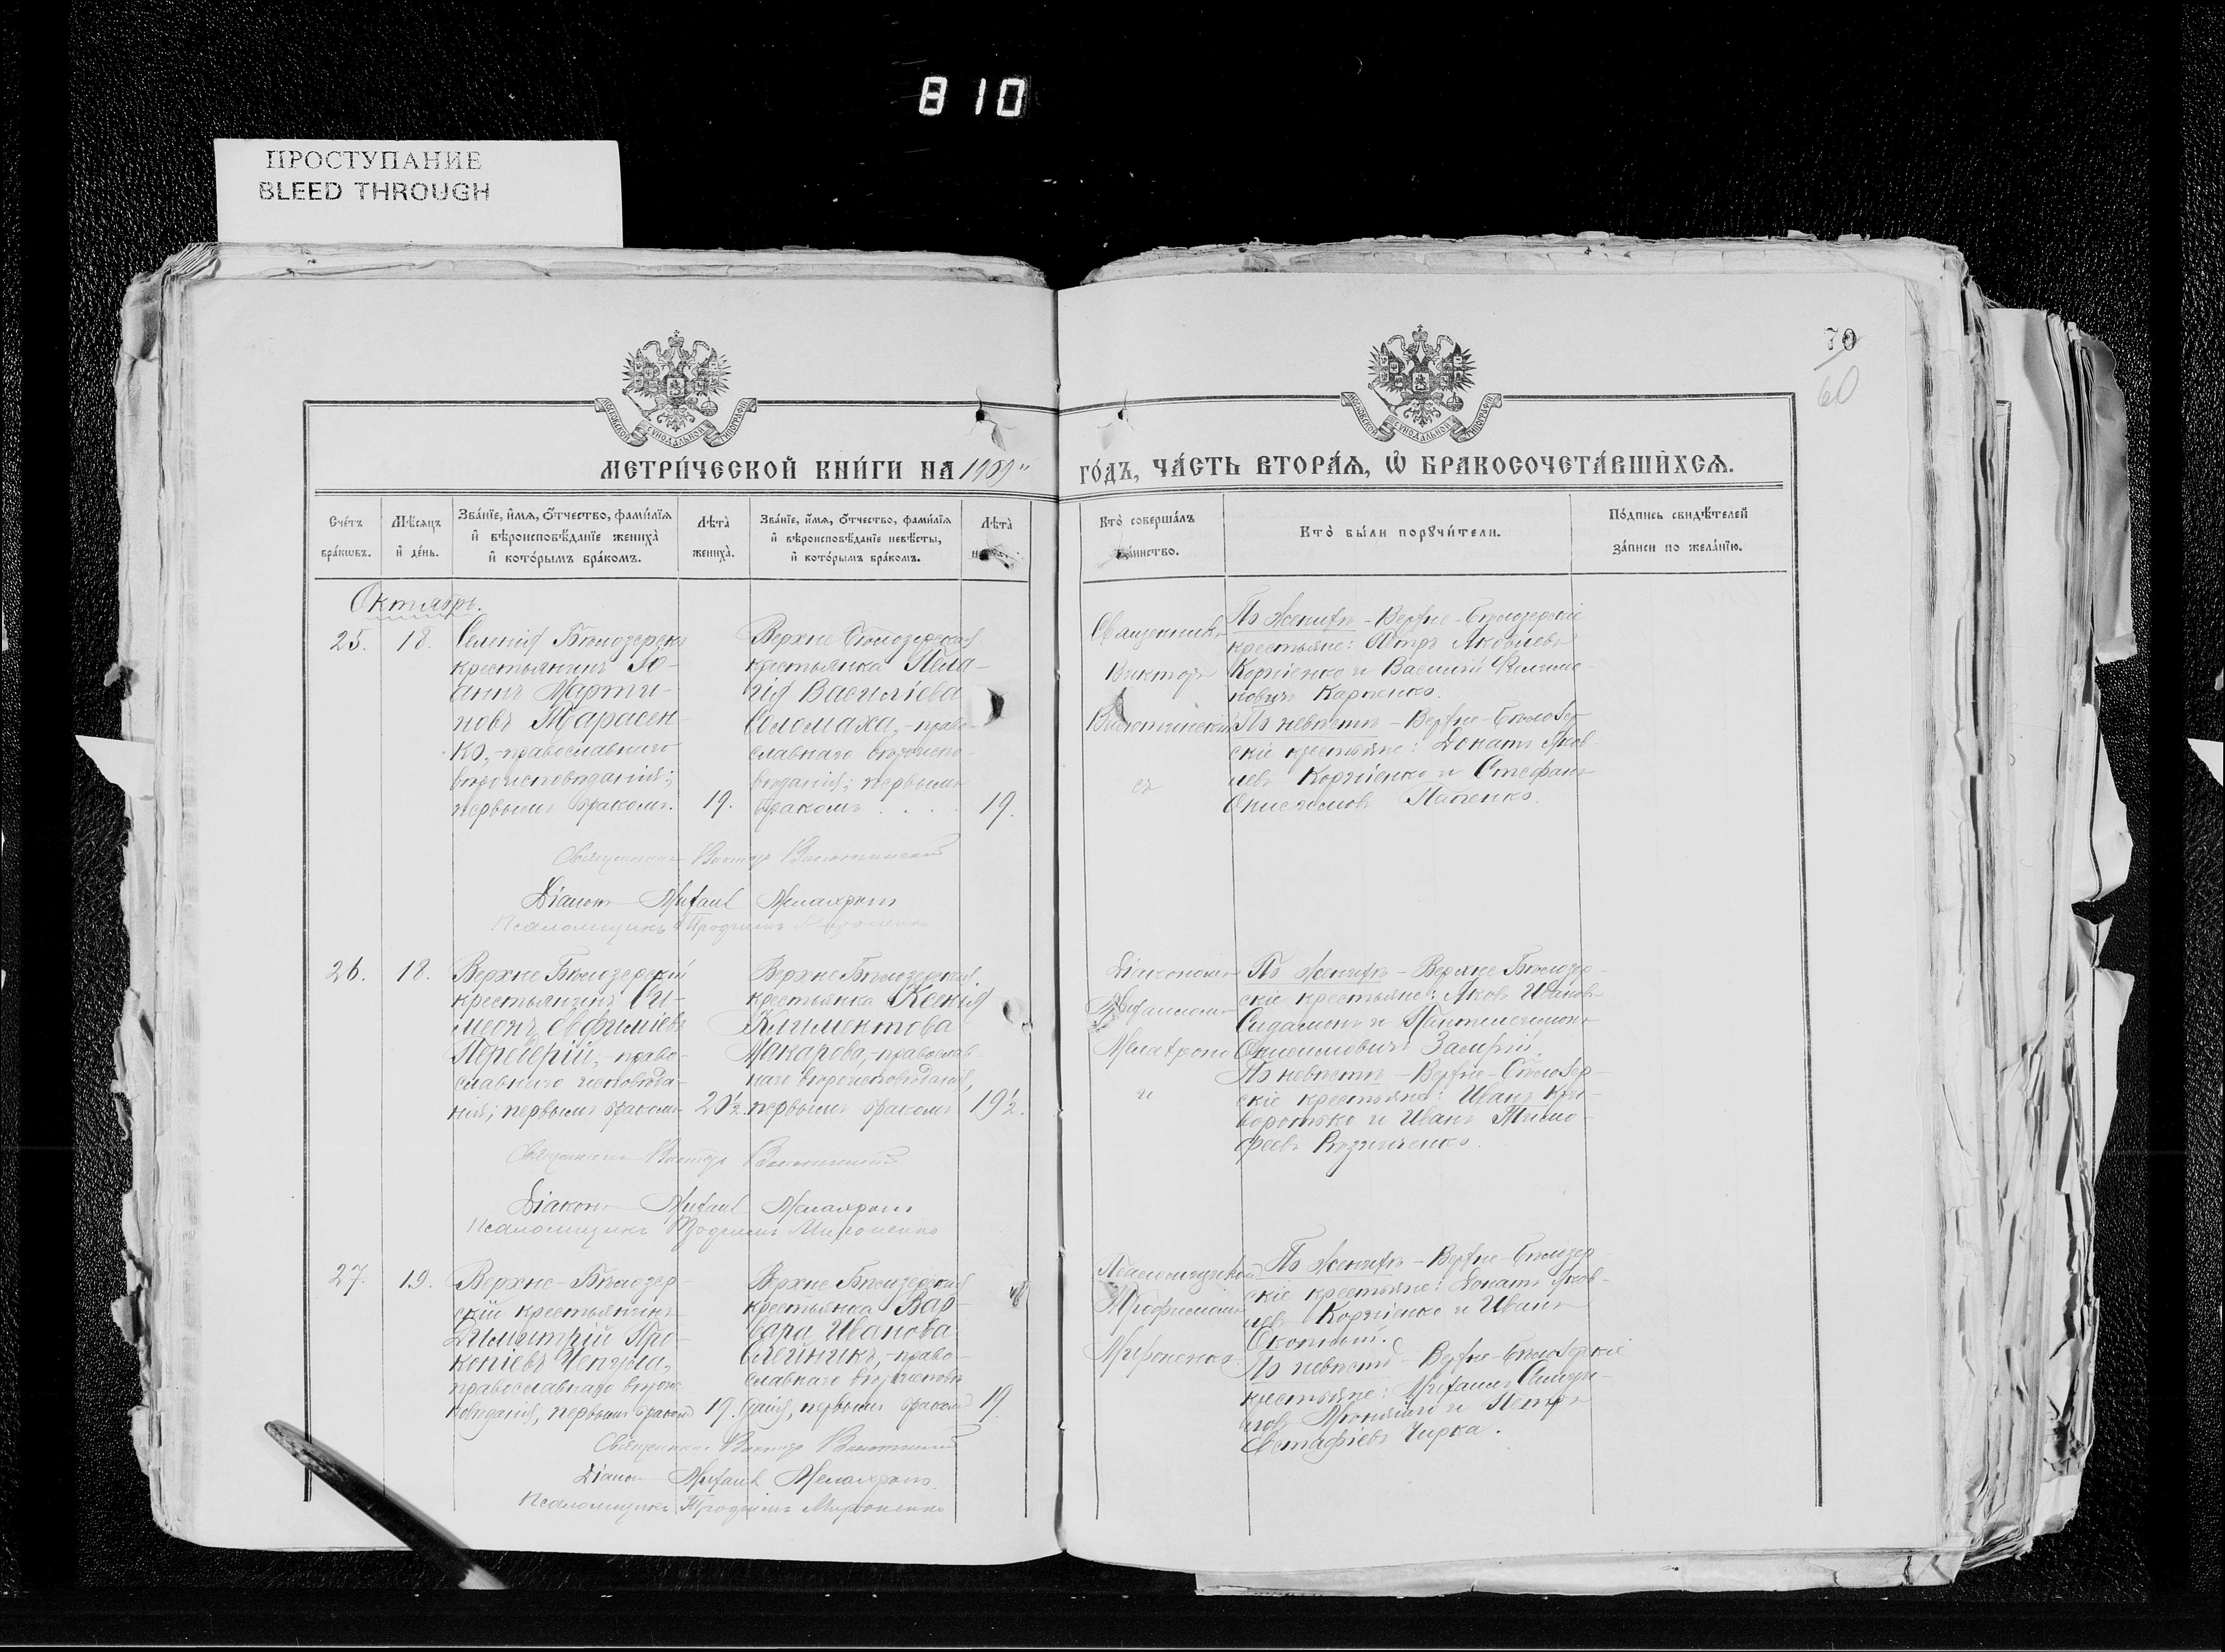 810
ПРОСТУПАНИЕ
BLEED THROUGH
70
60
МОСКОВСКОЙ СѴНОДАЛЬНОЙ ТИПОГРАФІИ
МОСКОВСКОЙ СѴНОДАЛЬНОЙ ТИПОГРАФІИ
МЕТРИ́ЧЕСКОЙ КНИ́ГИ НА 1909
ГО́ДЪ, ЧА́СТЬ ВТОРА́Ѧ, Ѡ҆ БРАКОСОЧЕТА́ВШИХСѦ.
Сче́тъ
бра́кѡвъ.
Мѣ́сѧцъ
и҆ де́нь.
Зва́нїе, и҆́мѧ, о҆́тчество, фами́лїѧ
и҆ вѣроисповѣ́данїе жениха̀
и҆ кото́рымъ бра́комъ.
Лѣта̀
жениха̀.
Зва́нїе, и҆́мѧ, о҆́тчество, фами́лїѧ
и҆ вѣроисповѣ́данїе невѣ́сты,
и҆ кото́рымъ бра́комъ.
Лѣта̀
Кто̀ соверша́лъ
та́инство.
Кто̀ бы́ли порꙋчи́тели.
По́дпись свидѣ́телей
за́писи по жела́нїю.
Октябрь.
25.
18.
Селенія Бѣлозерскъ
крестьянинъ Іо-
аннъ Марти-
новъ Тарасен-
ко, - православнаго
вѣроисповѣданія;
первымъ бракомъ.
19.
Верхне Бѣлозерская
крестьянка Пела-
гія Васильева
Соломаха, - право-
славнаго вѣроиспо-
вѣданія; первымъ
бракомъ . . . .
19.
Священникъ
Викторъ
съ
По женихѣ - Верхне-Бѣлозерскіе
крестьяне: Петръ Яковлевъ
Корніенко и Василій
новичъ Карпенко.
По невѣстѣ - Верхне-Бѣлозер-
скіе крестьяне: Донатъ Яков-
левъ Корніенко и Стефанъ
Онисимовъ Папенко.
Священникъ Викторъ
Діаконъ Михаилъ Мелахронъ
Псаломщикъ Трофимъ Мироненко
26.
18.
Верхне Бѣлозерскій
крестьянинъ Си-
меонъ Евфиміевъ
Перетерій, - право-
славнаго исповѣда-
нія; первымъ бракомъ
20½.
Верхне Бѣлозерская
крестьянка Ксенія
Климентова
Макарова, - православ-
наго вѣроисповѣданія,
первымъ бракомъ
19½.
Діакономъ
Михаиломъ
и
По женихѣ - Верхне Бѣлозер-
скіе крестьяне: Яковъ Ивановъ
Сидамонъ и Пантелеимонъ
Онисимовичъ
По невѣстѣ - Верхне-Бѣлозер-
скіе крестьяне: Иванъ Кри-
воротько и Иванъ Тимо-
феевъ
Священникъ Викторъ
Діаконъ Михаилъ Мелахронъ
Псаломщикъ Трофимъ Мироненко
27.
19.
Верхне-Бѣлозер-
скій крестьянинъ
Димитрій Про-
копіевъ Чепурла,
православнаго вѣроис-
повѣданія, первымъ бракомъ
19.
Верхне Бѣлозерская
крестьянка Вар-
вара Иванова
Олейникъ, - право-
славнаго вѣроисповѣ-
данія, первымъ бракомъ
19.
Псаломщикомъ
Трофимомъ
Мироненко.
По женихѣ - Верхне-Бѣлозер-
скіе крестьяне: Донатъ Яков-
левъ Корніенко и Иванъ
По невѣстѣ - Верхне-Бѣлозерскіе
крестьяне: Михаилъ
и Петръ
Евстафіевъ Чирка.
Священникъ Викторъ
Діаконъ Михаилъ Мелахронъ
Псаломщикъ Трофимъ Мироненко